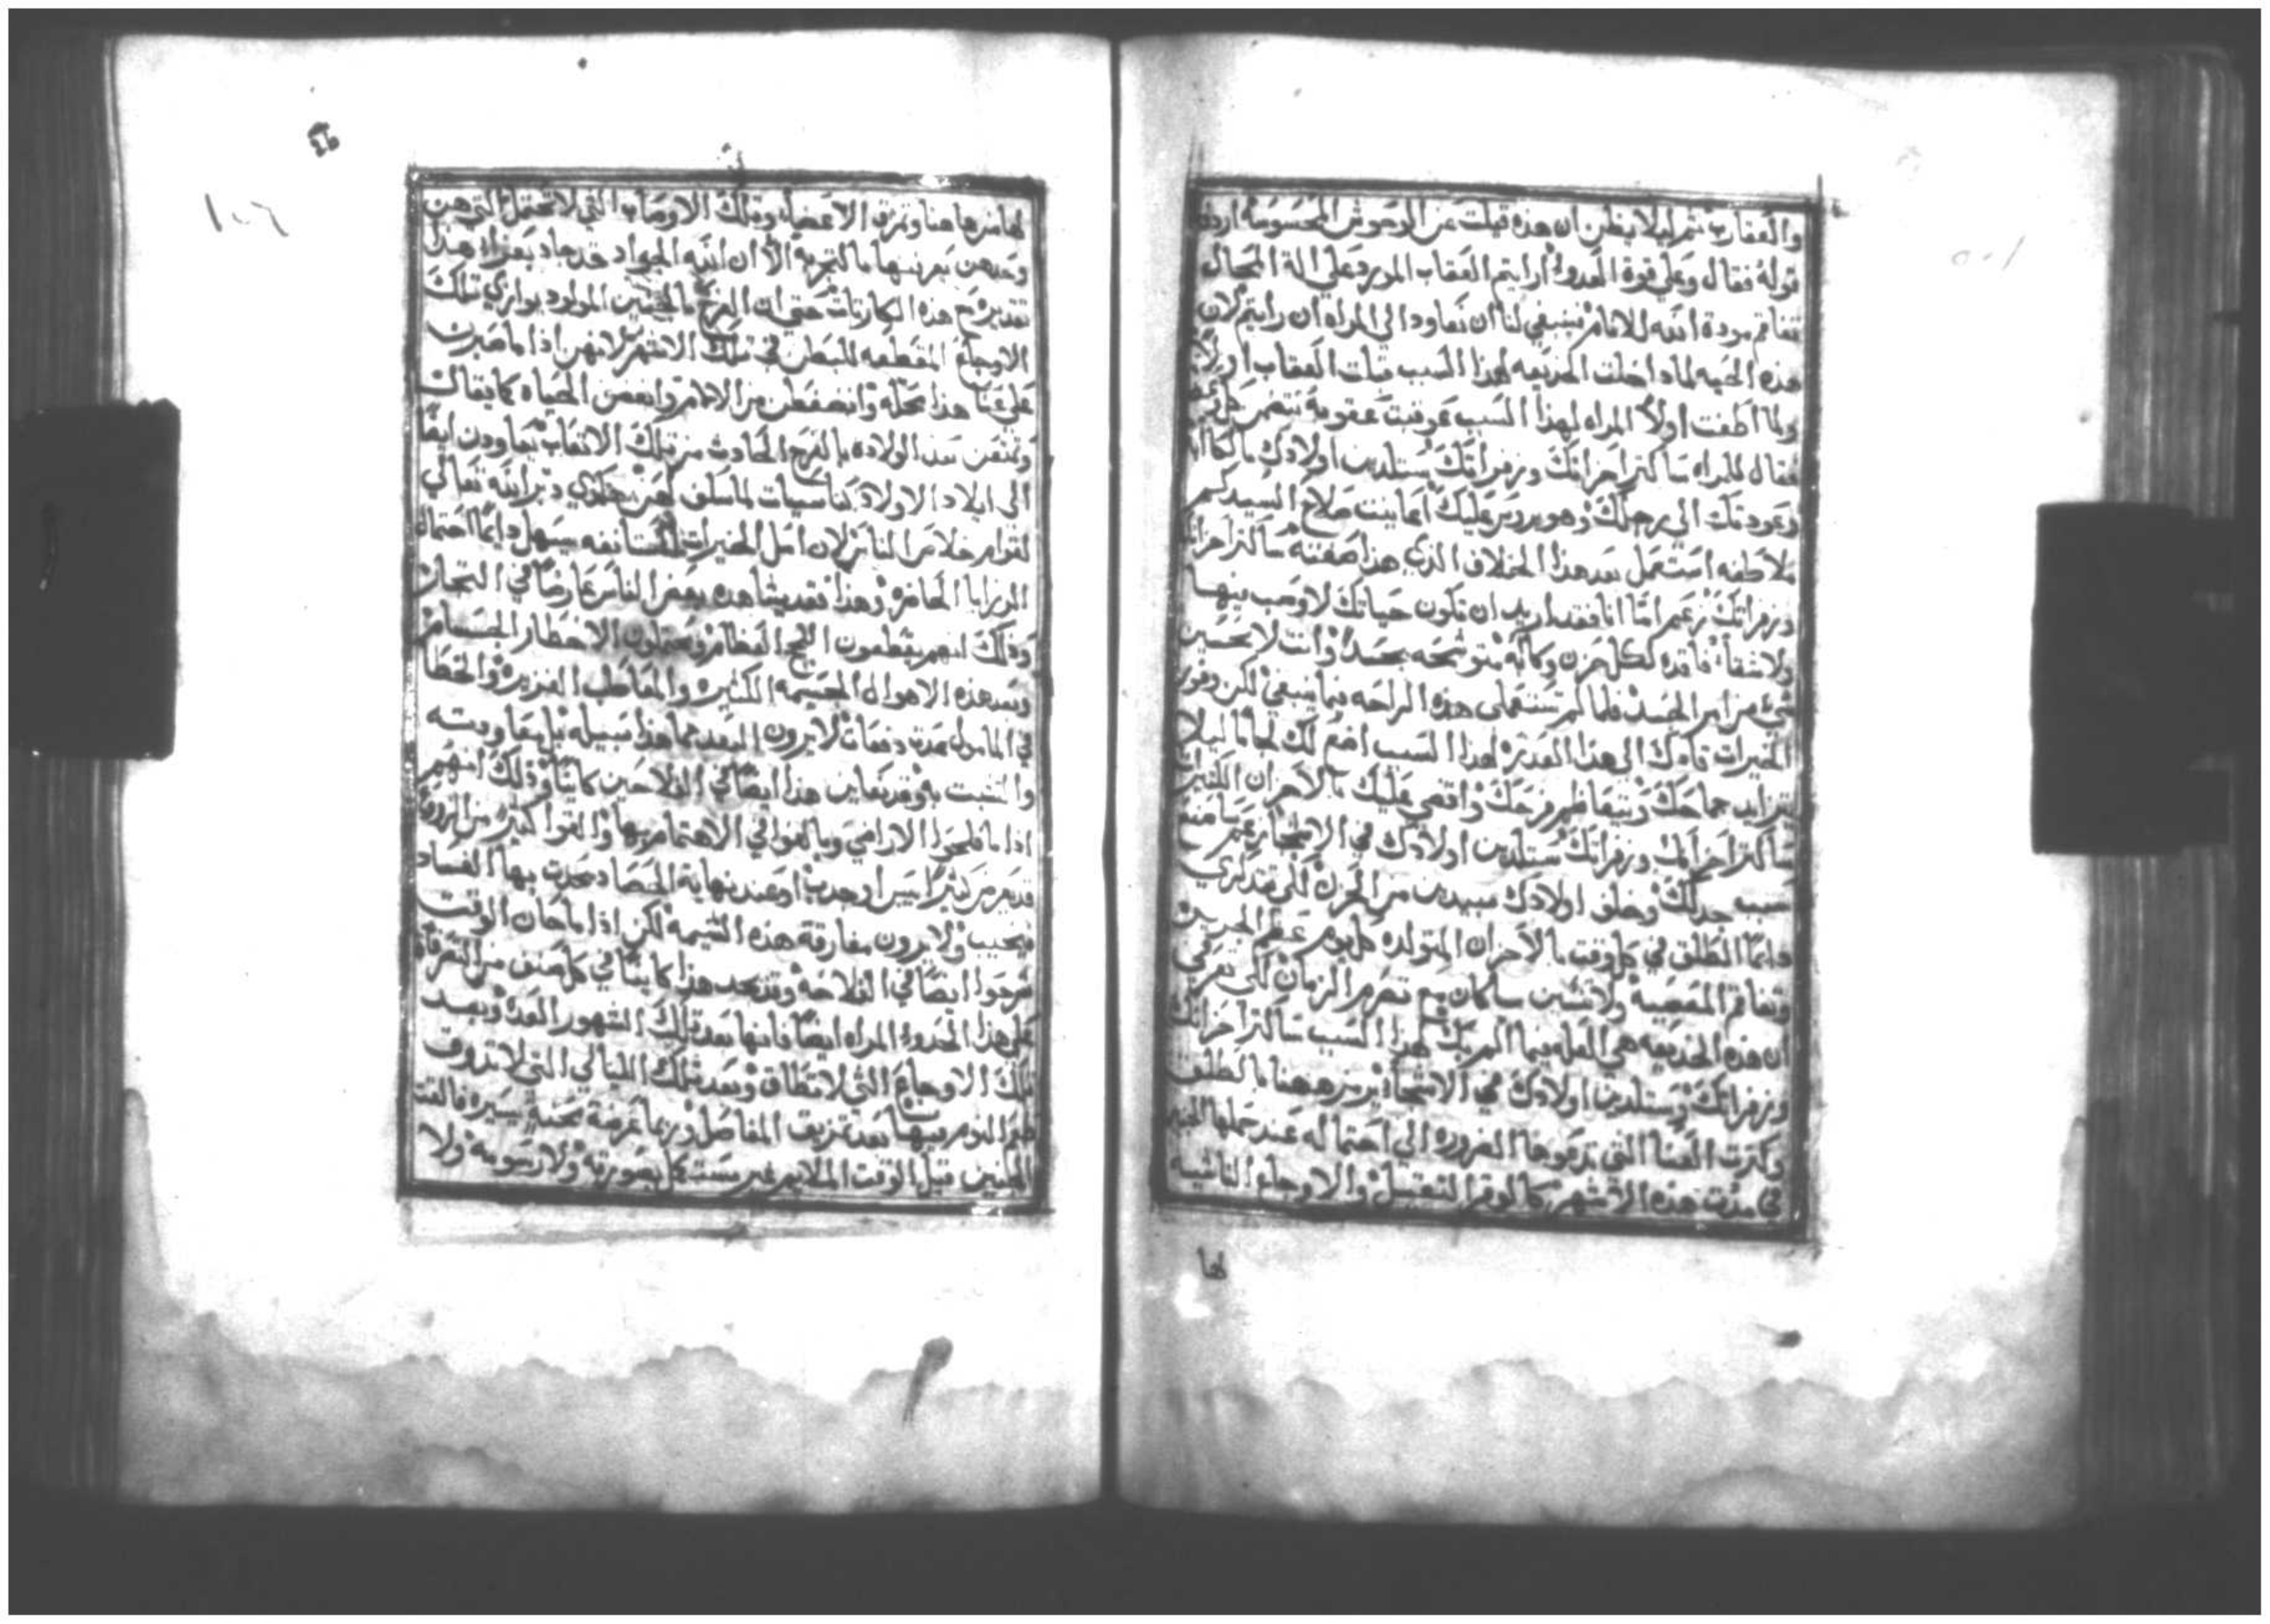 والعقارب ثم ليلا يظن ان هذه قيلت عن الوحوش المحسوسه اردف
قوله فقال وعلى قوة العدو ارايتم العقاب المورد على الة المحال
تفاقم مودة الله للانام فينبغي لنا ان نعاود الى المراه ان رايتم لان
هذه الحيه لما داخلت الخديعه لهذا السبب قبلت العقاب اولا
ولما اطغت اولا المراه لهذا السبب عوقبت عقوبة تتضمن
فقال للمراه ساكثر احزانك وزفراتك ستلدين اولادك بالكاابه
وعودتك الى رجلك وهو يروس عليك اعاينت صلاح السيد كم
ملاطفه استعمل بعد هذا الخلاف الذي هذا صفته ساكثر احزانك
وزفراتك زعم اما انا فقد اريد ان تكون حياتك لا وصب فيها
ولا شقا فاقده لكل حزن وكانه متوشحه بجسد وانت لا تحسين
شي من امر الجسد فلما لم تستعملي هذه الراحه فيما ينبغي لكن وفور
الخيرات قادك الى هذا القدر لهذا السبب اضع لك لجاما ليلا
يتزايد جماحك ويتعاظم مرحك واقضي عليك بالاحزان الكثيره
ساكثر احزانك وزفراتك ستلدين اولادك في الاشجان زعم
سبب جدلك وخلف اولادك مبيدين من الحزن لكي تتذكري
دايما الطلق في كل وقت بالاحزان المتولده كل يوم عظم الجرير
وتفاقم المعصيه ولا تنسين ما كان مع تصرم الزمان لكي تعرفي
ان هذه الخديعه هي العله فيما الم بك لهذا السبب ساكثر احزانك
وزفراتك وستلدين اولادك في الاشجان يرمز ههنا بالطلق
وكثرت العنا التي تدعوها الضروره الى احتماله عند حملها الجنين
في مدت هذه الاشهر كالوقر الثقيل والاوجاع الناشيه
لها
لها من هاهنا وتمزق الاعضا وتلك الاوصاب التي لا تحتمل التي هن
وحدهن يعرفنها بالتجربه الا ان الله الجواد قد جاد بعزا هذا
تقديره مع هذه الكارثات حتى ان الفرح بالجنين المولود يوازي تلك
الاوجاع المقطعه للبطن في تلك الاشهر لانهن اذا ما صبرن
على عنا هذا محله وانضغطن من الالام وابغضن الحياه كما يقال
وتمتعن بعد الولاده بالفرح الحادث من تلك الاتعاب يعاودن ايضا
الى ايلاد الاولاد ناسيات لما سلف لهن جاري دبر الله تعالى
لقوام خلاص الناس لان امل الخيرات المستانفه يسهل دايما احتمال
الرزايا الحاضره وهذا فقد يشاهده بعض الناس عارضا في التجار
وذلك انهم يقطعون اللجج العظام ويحتملون الاخطار الجسام
وبعد هذه الاهوال الجسيمه الكثيره والمعاطب الغزيره والخطا
في المامول بعدت دفعات لا يرون البعد مما هذا سبيله بل بمعاودته
والتشبت به وقد يعاين هذا ايضا في الفلاحين كاينا وذلك انهم
اذا ما فلحوا الاراضي وبالغوا في الاهتمام بها والقوا كثيرا من الزروع
قد يعرض كثيرا يبس او جدب او عند نهاية الحصاد يحدث بها الفساد
فيخيب ولا يرون مفارقة هذه الشيمه لكن اذا ما حان الوقت
شرعوا ايضا في الفلاحه وقد نجد هذا كاينا في كل صنف من
على هذا الحدو المراه ايضا فانها بعد تلك الشهور العده وبعد
تلك الاوجاع التي لا تطاق وبعد تلك الليالي التي لا تذوق
طعم النوم فيها بعد تمزيق المفاصل وربما عرضة محنة يسيره فالقت
الجنين قبل الوقت الملايم غير مستكمل بصورته ولا رسومه ولا